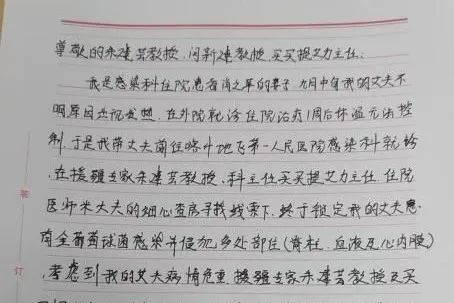 尊敬的朱建芸教授、闫新建教授、买买提艾力主任:
我是感染科住院患者肖之军的妻子,九月中旬我的丈夫不
明原因出现发热,在外院就诊住院治疗1周后体温无法控
制,于是我带丈夫前往喀什地区第一人民医院感染科就诊,
在援疆专家朱建芸教授、科主任买买提艾力主任、住院
医师米大夫的细心查房寻找线索下,终于确定我的丈夫患
有金葡萄球菌感染并侵犯多处部位(脊柱、血液及心内膜)
,考虑到我的丈夫病情危重,援疆专家朱建芸教授及买
装
订